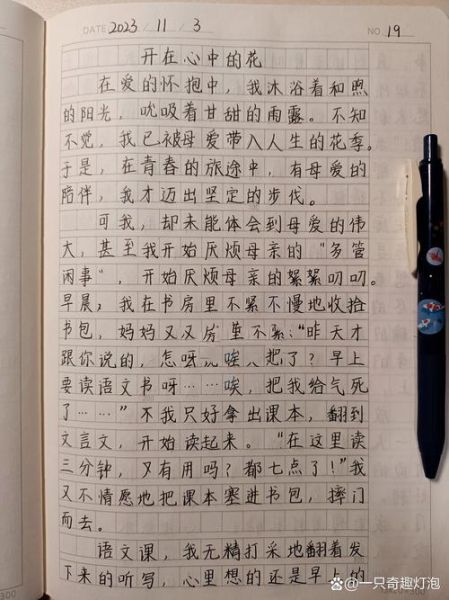 DATE 2023 / 11 / 3 NO. 19
开在心中的花
在爱的怀抱中，我沐浴着和煦
的阳光，吮吸着甘甜的雨露。不知
不觉，我已被母爱带入人生的花季。
于是，在青春的旅途中，有母爱的
陪伴，我才迈出坚定的步伐。
可我，却未能体会到母爱的伟
大，甚至我开始厌烦母亲的“多管
闲事”，开始厌烦母亲的絮絮叨叨。
早晨，我在书房里不紧不慢地收捡
书包，妈妈又又房里不紧：“昨天才
跟你说的，怎呀 唉 把了？早上
要读语文书呀……唉，把我给气死
了……”不我只好拿出课本，翻到
文言文，开始读起来。“在这里读
三分钟，又有用吗？都七点了！”我
又不情愿地把课本塞进书包，摔门
而去。
语文课，我无精打采地翻着发
下来的听写，心里想的还是早上的
@一只奇趣灯泡